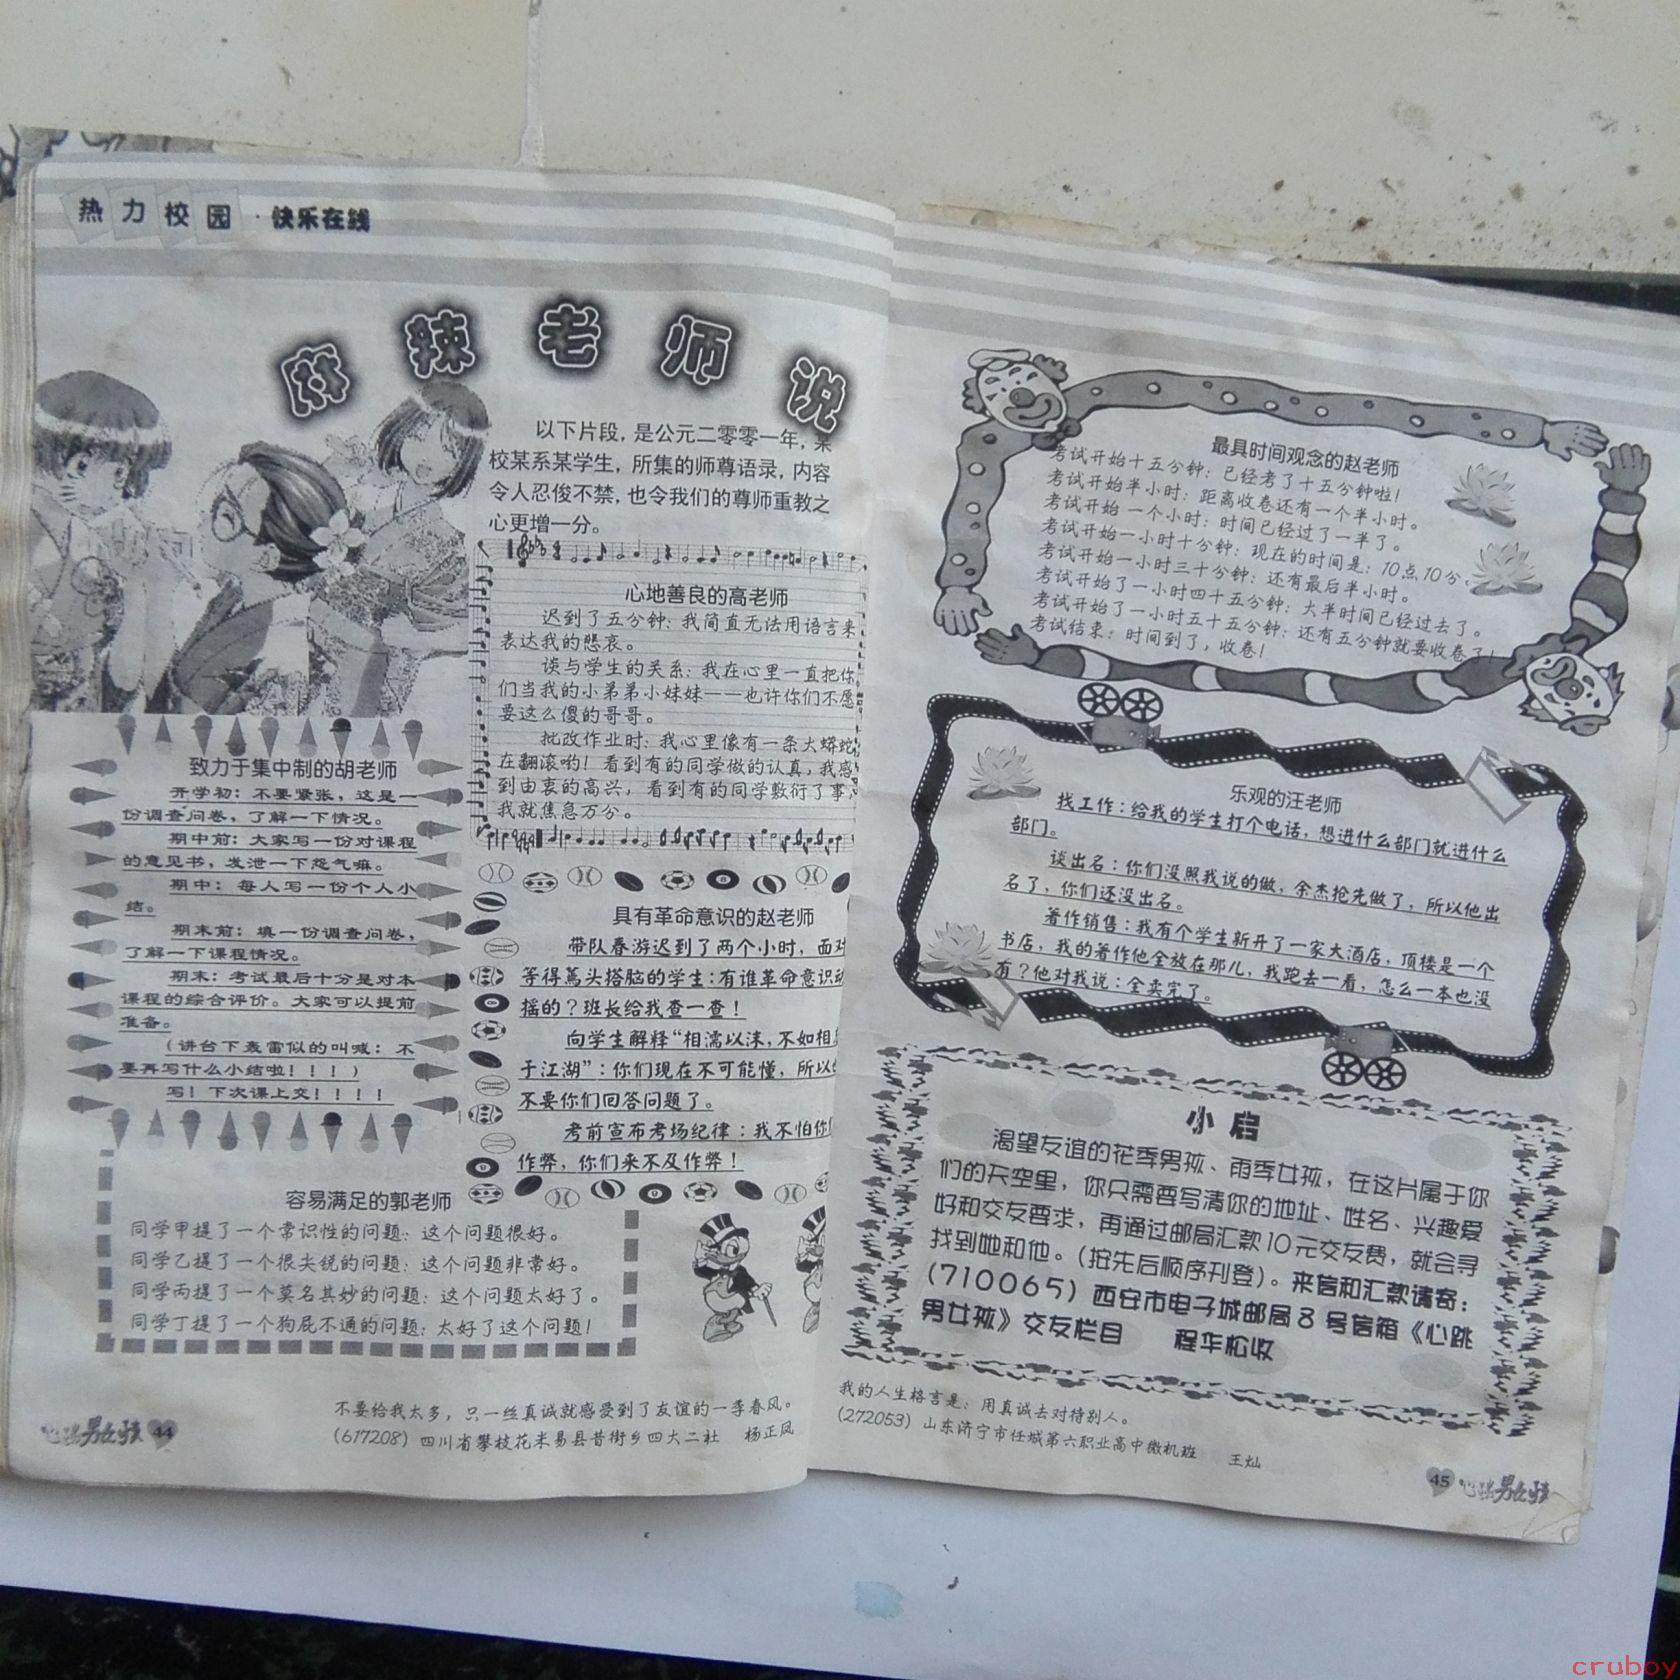 热力校园·快乐在线
麻辣老师说
以下片段，是公元二零零一年，某
校某系某学生，所集的师尊语录，内容
令人忍俊不禁，也令我们的尊师重教之
心更增一分。
心地善良的高老师
迟到了五分钟：我简直无法用语言来
表达我的悲哀。
谈与学生的关系：我在心里一直把你
们当我的小弟弟小妹妹——也许你们不愿
要这么傻的哥哥。
批改作业时：我心里像有一条大蟒蛇
在翻滚哟！看到有的同学做的认真，我感
到由衷的高兴，看到有的同学敷衍了事，
我就焦急万分。
致力于集中制的胡老师
开学初：不要紧张，这是一
份调查问卷，了解一下情况。
期中前：大家写一份对课程
的意见书，发泄一下怨气嘛。
期中：每人写一份个人小
结。
期末前：填一份调查问卷，
了解一下课程情况。
期末：考试最后十分是对本
课程的综合评价。大家可以提前
准备。
（讲台下轰雷似的叫喊：不
要再写什么小结啦！！！）
写！下次课上交！！！！
具有革命意识的赵老师
带队春游迟到了两个小时，面对
等得蔫头搭脑的学生：有谁革命意识动
摇的？班长给我查一查！
向学生解释“相濡以沫，不如相
于江湖”：你们现在不可能懂，所以
不要你们回答问题了。
考前宣布考场纪律：我不怕你
作弊，你们来不及作弊！
容易满足的郭老师
同学甲提了一个常识性的问题：这个问题很好。
同学乙提了一个很尖锐的问题：这个问题非常好。
同学丙提了一个莫名其妙的问题：这个问题太好了。
同学丁提了一个狗屁不通的问题：太好了这个问题！
不要给我太多，只一丝真诚就感受到了友谊的一季春风。
(617208) 四川省攀枝花米易县昔街乡四大二社 杨正凤
心跳男女孩 44
最具时间观念的赵老师
考试开始十五分钟：已经考了十五分钟啦！
考试开始半小时：距离收卷还有一个半小时。
考试开始 一个小时：时间已经过了一半了。
考试开始一小时十分钟：现在的时间是：10点10分。
考试开始一小时三十分钟：还有最后半小时。
考试开始了一小时四十五分钟：大半时间已经过去了。
考试开始了一小时五十五分钟：还有五分钟就要收卷了！
考试结束：时间到了，收卷！
乐观的汪老师
找工作：给我的学生打个电话，想进什么部门就进什么
部门。
谈出名：你们没照我说的做，余杰抢先做了，所以他出
名了，你们还没出名。
著作销售：我有个学生新开了一家大酒店，顶楼是一个
书店，我的著作他全放在那儿，我跑去一看，怎么一本也没
有？他对我说：全卖完了。
小启
渴望友谊的花季男孩、雨季女孩，在这片属于你
们的天空里，你只需要写清你的地址、姓名、兴趣爱
好和交友要求，再通过邮局汇款10元交友费，就会寻
找到她和他。（按先后顺序刊登）。来信和汇款请寄：
（710065）西安市电子城邮局8号信箱《心跳
男女孩》交友栏目 程华松收
我的人生格言是：用真诚去对待别人。
(272053) 山东济宁市任城第六职业高中微机班 王灿
45 心跳男女孩
cruboy